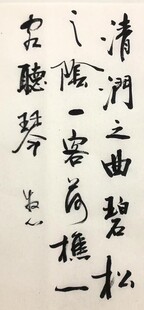 清澗之曲碧松
之陰一客荷樵一
客聽琴